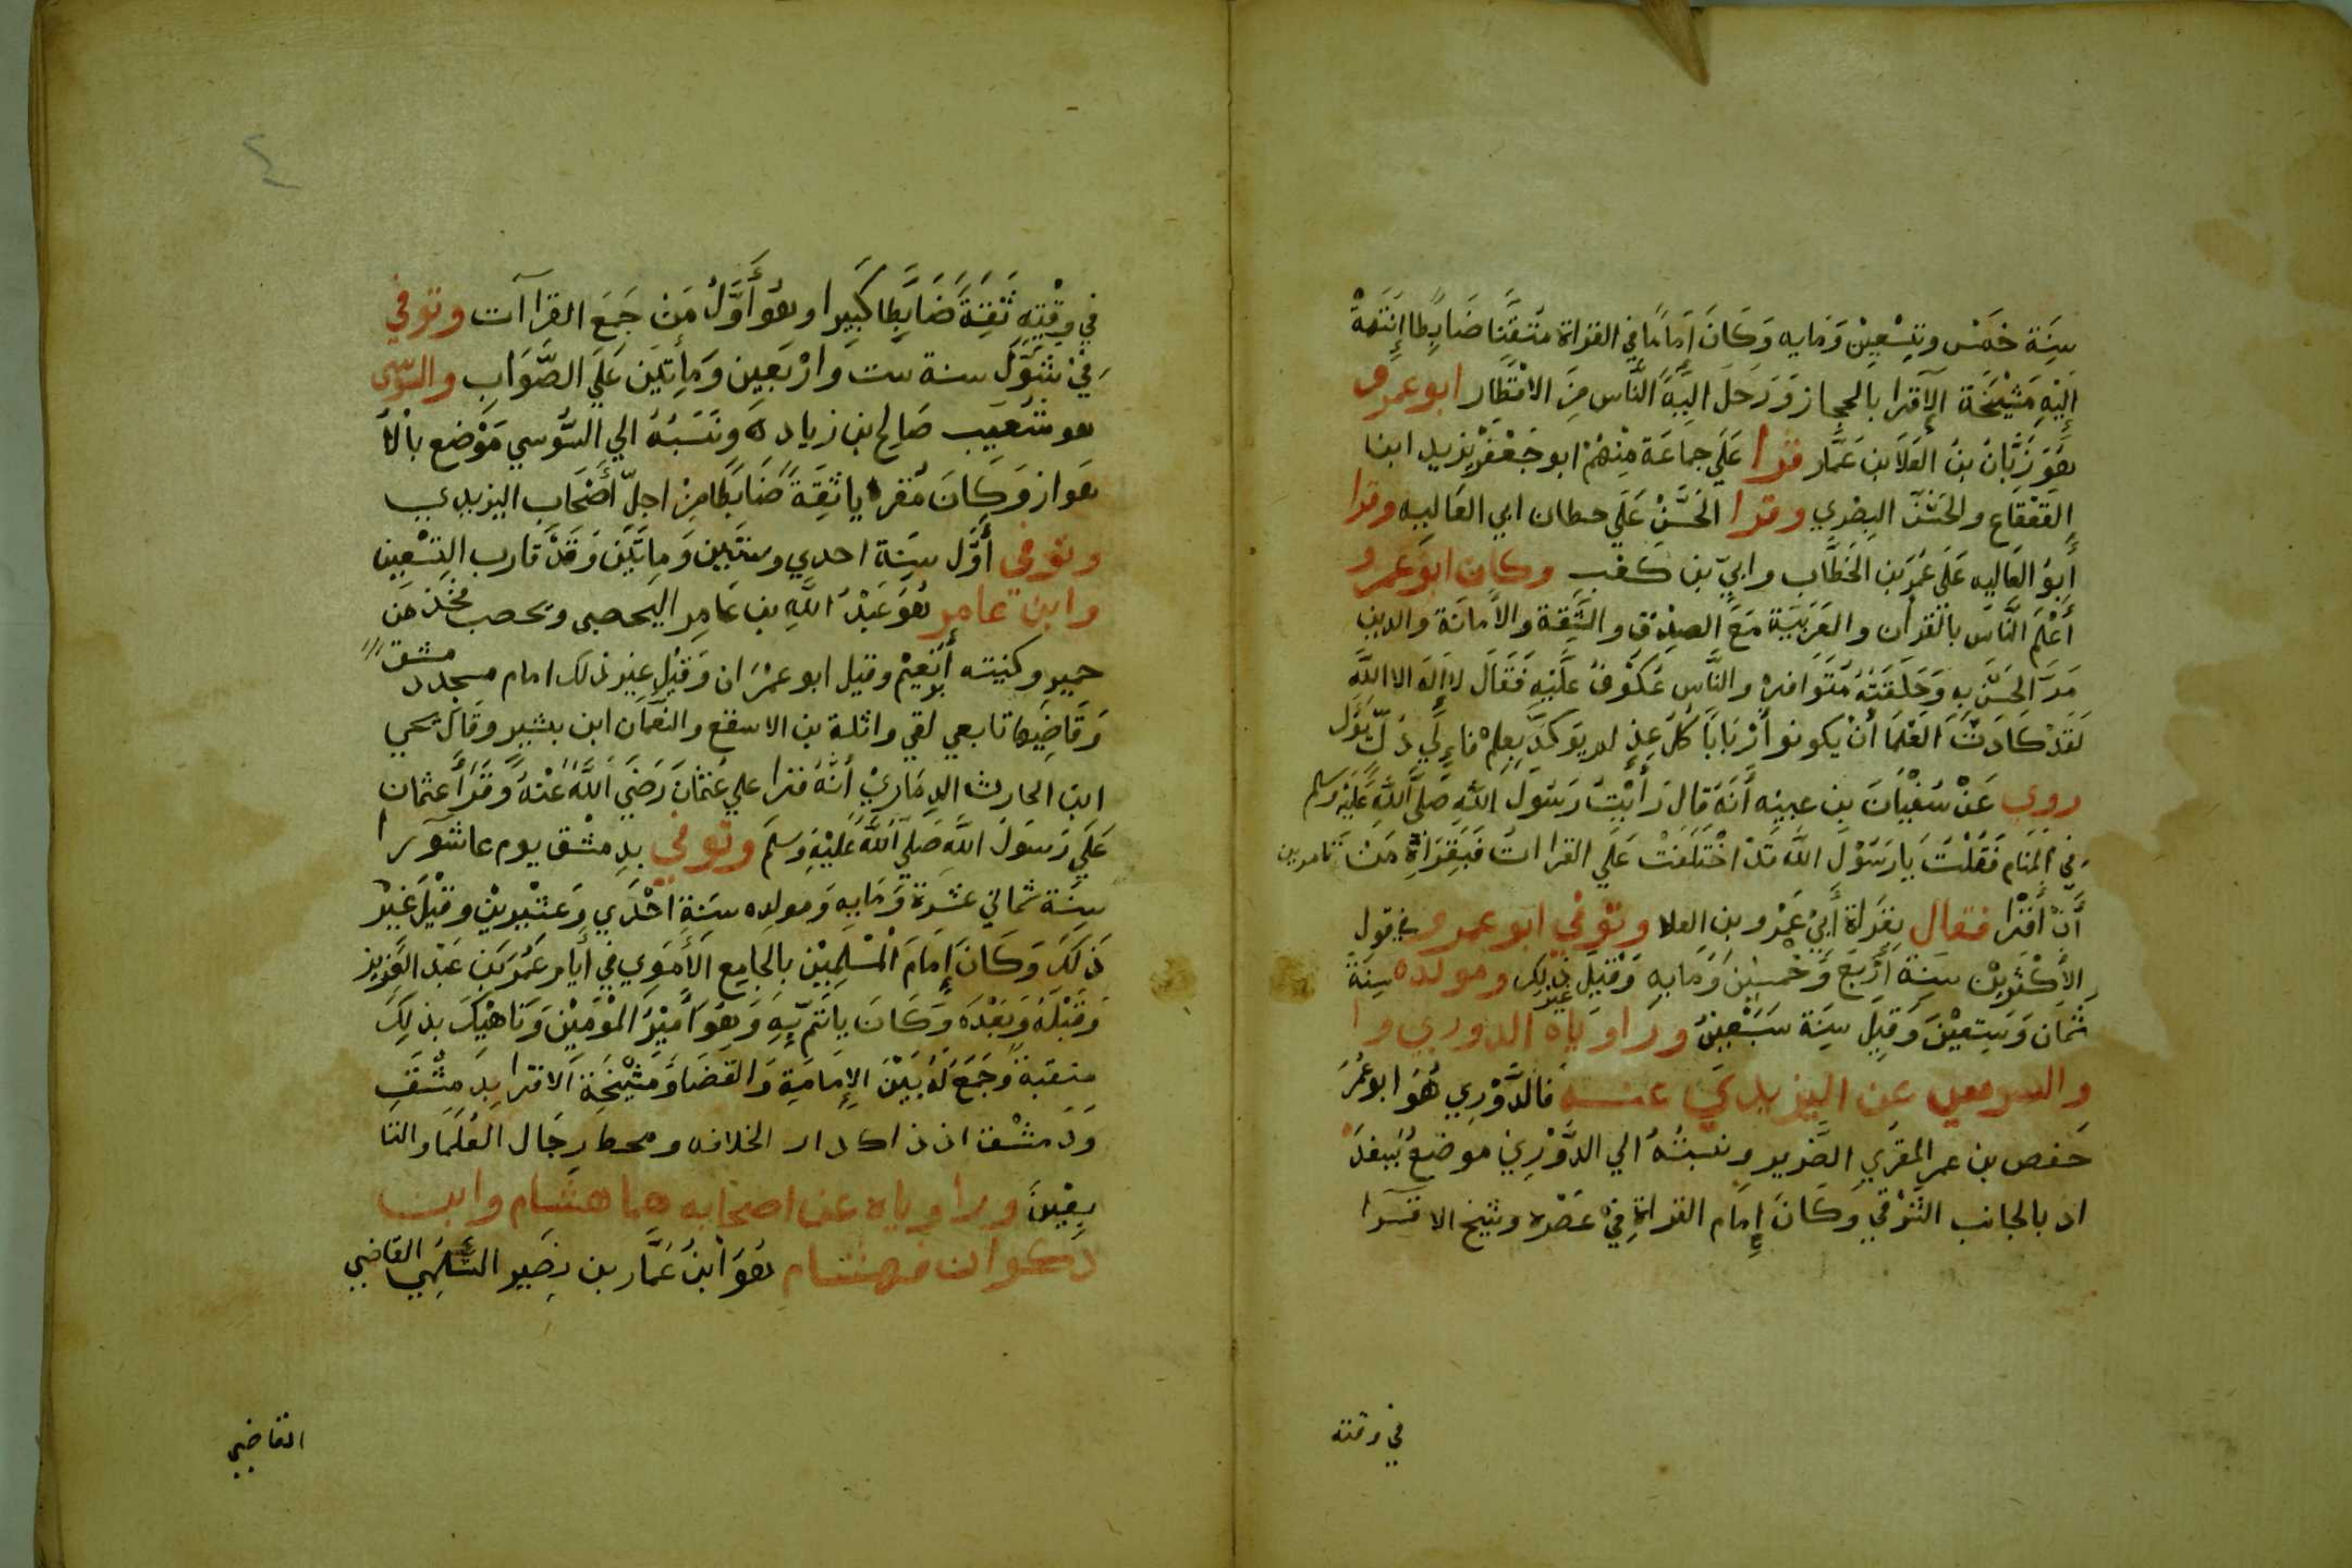 سنة خمس وتسعين ومايه وكان اماما في القراة متقنا ضابطا إنتهة
إليه مشيخة الإقرا بالحجاز ورحل اليه الناس من الاقطار ابو عمرو
هو زبان بن العلا بن عمار قرا على جماعة منهم ابو جعفر يزيد ابن
القعقاع والحسن البصري وقرا الحسن علي حطان ابي العاليه وقرا
أبو العاليه على عمر بن الخطاب وابي بن كعب وكان ابو عمرو
أعلم الناس بالقرأن والعربية مع الصدق والثقة والأمانة والدين
مر الحسن به وحلقته متوافره والناس عكوف عليه فقال لا إله الا الله
لقد كادت العلما أن يكونو أربابا كل عز لم يوكد بعلم فاءلي ذل يؤل
روي عن سفيان بن عيينه أنه قال رأيت رسول الله صلى الله عليه وسلم
في المنام فقلت يا رسول الله قد اختلفت علي القراات فبقراة من تامرني
أن أقرا فقال بقراة أبي عمرو بن العلا وتوفي ابو عمرو في قول
الأكثرين سنة أربع وخمسين ومايه وقيل غير ذلك ومولده سنة
ثمان وستين وقيل سنة سبعين وراوياه الدوري وا
والسوسي عن اليزيدي عنه فالدوري هو ابو عمر
حفص بن عمر المقري الضرير ونسبته الي الدوري موضع ببغد
اد بالجانب الشرقي وكان إمام القراة في عصره وشيخ الاقرا
في وقته
٤
في وقته ثقة ضابطا كبيرا وهو أول من جمع القراآت وتوفي
في شول سنة ست واربعين ومأتين علي الصواب والسوسي
هو شعيب صالح بن زياد ونسبه الي السوسي موضع بالأ
هواز وكان مقريا ثقة ضابطا من اجل أصحاب اليزيدي
وتوفي أول سنة احدي وستين وماتين وقد قارب التسعين
وابن عامر هو عبد الله بن عامر اليحصبي ويحصب فخذ من
حمير وكنيته أبو نعيم وقيل ابو عمران وقيل غير ذلك امام مسجد دمشق
وقاضيها تابعي لقي واثلة بن الاسقع والنعمان ابن بشير وقال يحي
ابن الحارث الدماري أنه قرا علي عثمان رضي الله عنه وقرأ عثمان
على رسول الله صلى الله عليه وسلم وتوفي بدمشق يوم عاشورا
سنة ثماني عشرة ومايه ومولده سنة احدي وعشرين وقيل غير
ذلك وكان إمام المسلمين بالجامع الأموي في أيام عمر بن عبد العزيز
وقبله وبعده وكان يأتم به وهو أمير المؤمنين وناهيك بذلك
منقبة وجمع له بين الإمامة والقضا ومشيخة الاقرا بدمشق
ودمشق اذ ذاك دار الخلافه ومحط رجال العلما والتا
بعين وراوياه عن اصحابه هما هشام وابن
ذكوان فهشام هو ابن عمار بن نصير السلمي القاضي
القاضي